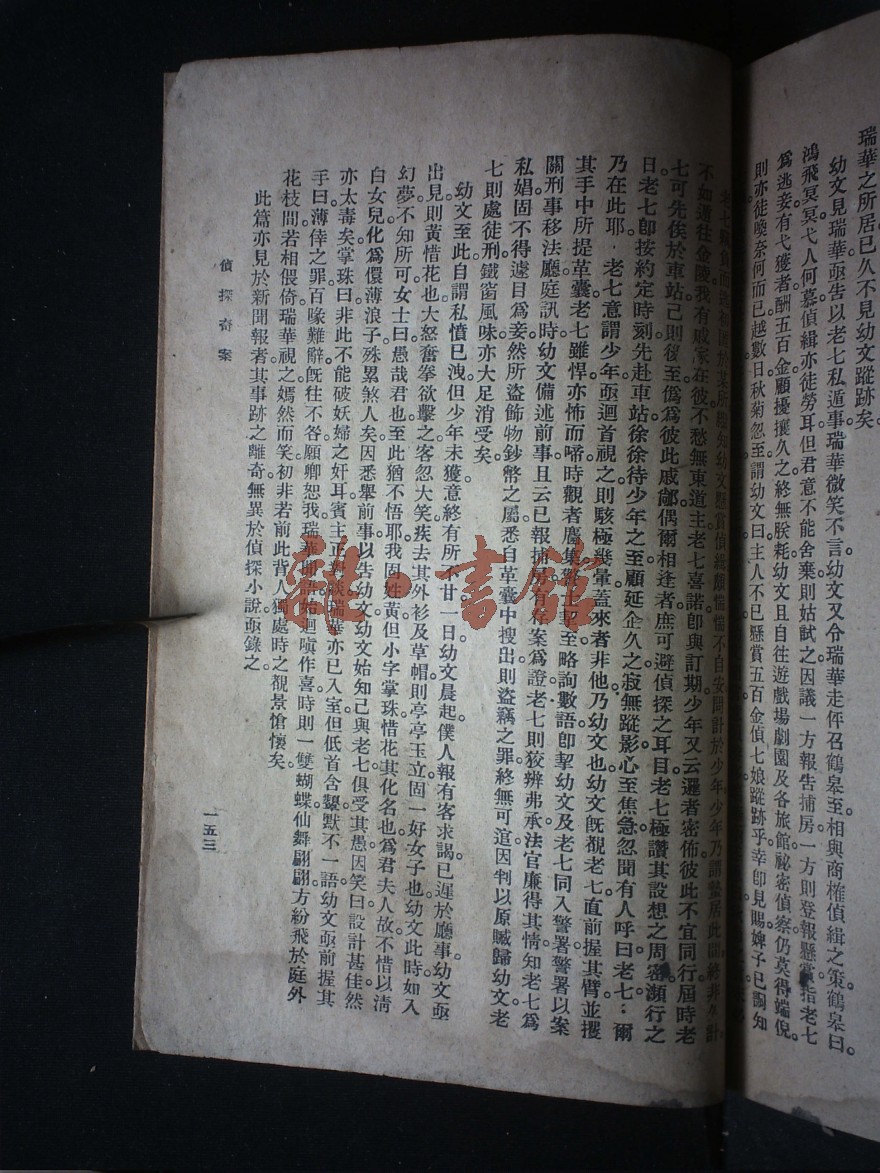 瑞華之所居已久不見幼文蹤跡矣。
幼文見瑞華亟告以老七私遁事瑞華微笑不言。幼文又令瑞華走伻召鶴皋至。相與商榷偵緝之策鶴皋曰。
鴻飛冥冥弋人何慕偵緝亦徒勞耳但君意不能舍棄則姑試之。因議一方報吿捕房一方則登報懸賞指老七
爲逃妾有弋獲者酬五百金顧擾攘久之終無朕耗幼文且自往遊戲場劇園及各旅館祕密偵察仍莫得端倪。
則亦徒喚奈何而已越數日秋菊忽至謂幼文曰主人不已懸賞五百金偵七娘蹤跡乎幸卽見賜婢子已詷知
不如遁往金陵我有戚家在彼不愁無東道主老七喜諾卽與訂期少年又云邏者密佈彼此不宜同行屆時老
七可先俟於車站己則後至僞爲彼此戚鄰偶爾相逢者庶可避偵探之耳目老七極讚其設想之周密瀕行之
日。老七卽按約定時刻先赴車站徐徐待少年之至顧延企久之寂無蹤影心至焦急忽聞有人呼曰老七：爾
乃在此耶．老七意謂少年。亟迴首視之則駭極幾暈蓋來者非他乃幼文也幼文旣覩老七直前握其臂並攫
其手中所提革囊老七雖悍亦怖而嗒時觀者麕集警士契至略詢數語卽挈幼文及老七同入警署警署以案
關刑事移法廳庭訊時幼文備述前事且云已報捕房有存案爲證老七則狡辨弗承法官廉得其情知老七爲
私娼固不得遽目爲妾然所盜飾物鈔幣之屬悉自革囊中搜出則盜竊之罪終無可逭因判以原贓歸幼文老
七則處徒刑鐵窗風味亦大足消受矣。
幼文至此自謂私憤已洩但少年未獲意終有所不甘一日幼文晨起僕人報有客求謁已遲於廳事幼文亟
出見則黃惜花也大怒奮拳欲擊之客忽大笑疾去其外衫及草帽則亭亭玉立固一好女子也幼文此時如入
幻夢不知所可女士曰愚哉君也至此猶不悟耶我固姓黃但小字掌珠惜花其化名也爲君夫人故不惜以淸
白女兒化爲儇薄浪子殊累煞人矣因悉舉前事以吿幼文幼文始知己與老七俱受其愚因笑曰設計甚佳然
亦太毒矣掌珠曰非此不能破妖婦之奸耳賓主正談瑞華亦已入室但低首含顰默不一語幼文亟前握其
手曰薄倖之罪百喙難辭旣往不咎願卿恕我瑞華聞語始迴嗔作喜時則一雙蝴蝶仙舞翩翩方紛飛於庭外
花枝間若相偎倚瑞華視之嫣然而笑初非若前此背人獨處時之覩景愴懷矣。
此篇亦見於新聞報者其事跡之離奇無異於偵探小說亟錄之。
偵探奇案
一五三
雜·書館